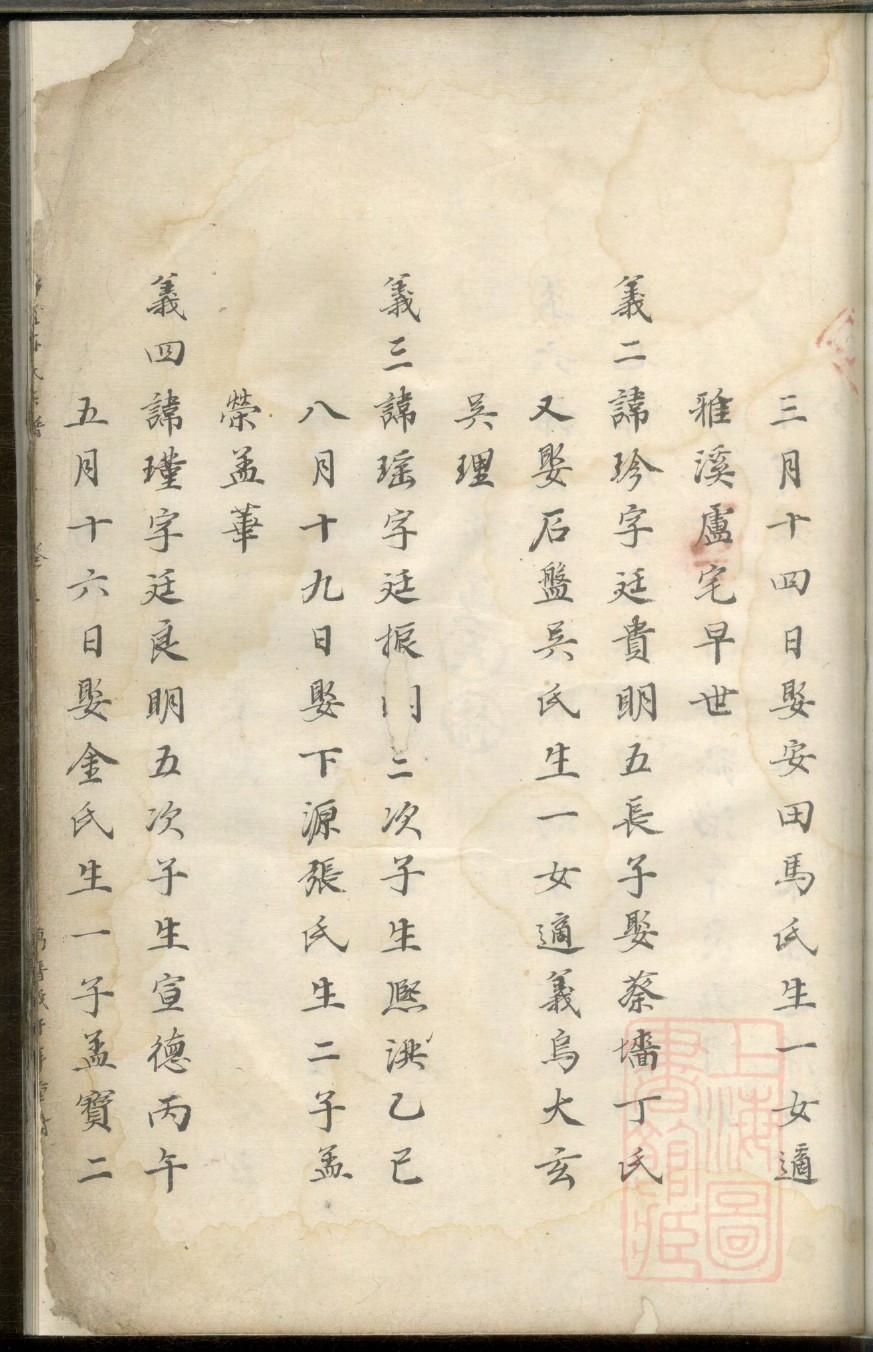 三月十四日娶安田馬氏生一女適
雅溪盧宅早世
義二諱珍字廷貴明五長子娶蔡墻丁氏
又娶石盤吳氏生一女適義烏大玄
吳理
義三諱瑶字廷振二次子生熈洪乙巳
八月十九日娶下源張氏生二子孟
榮孟華
義四諱瑾字廷良明五次子生宣德丙午
五月十六日娶金氏生一子孟寶二
上海圖書館藏